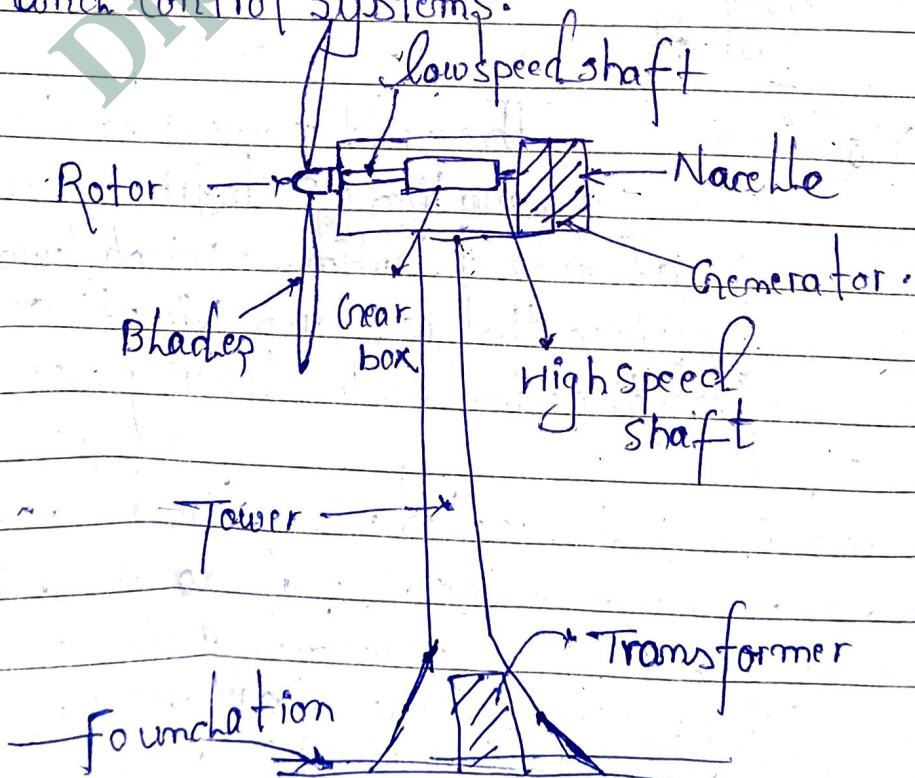 which control systems.
low speed shaft
Rotor
Nacelle
Generator.
Blades
Gear
box
High speed
shaft
Tower
Transformer
foundation